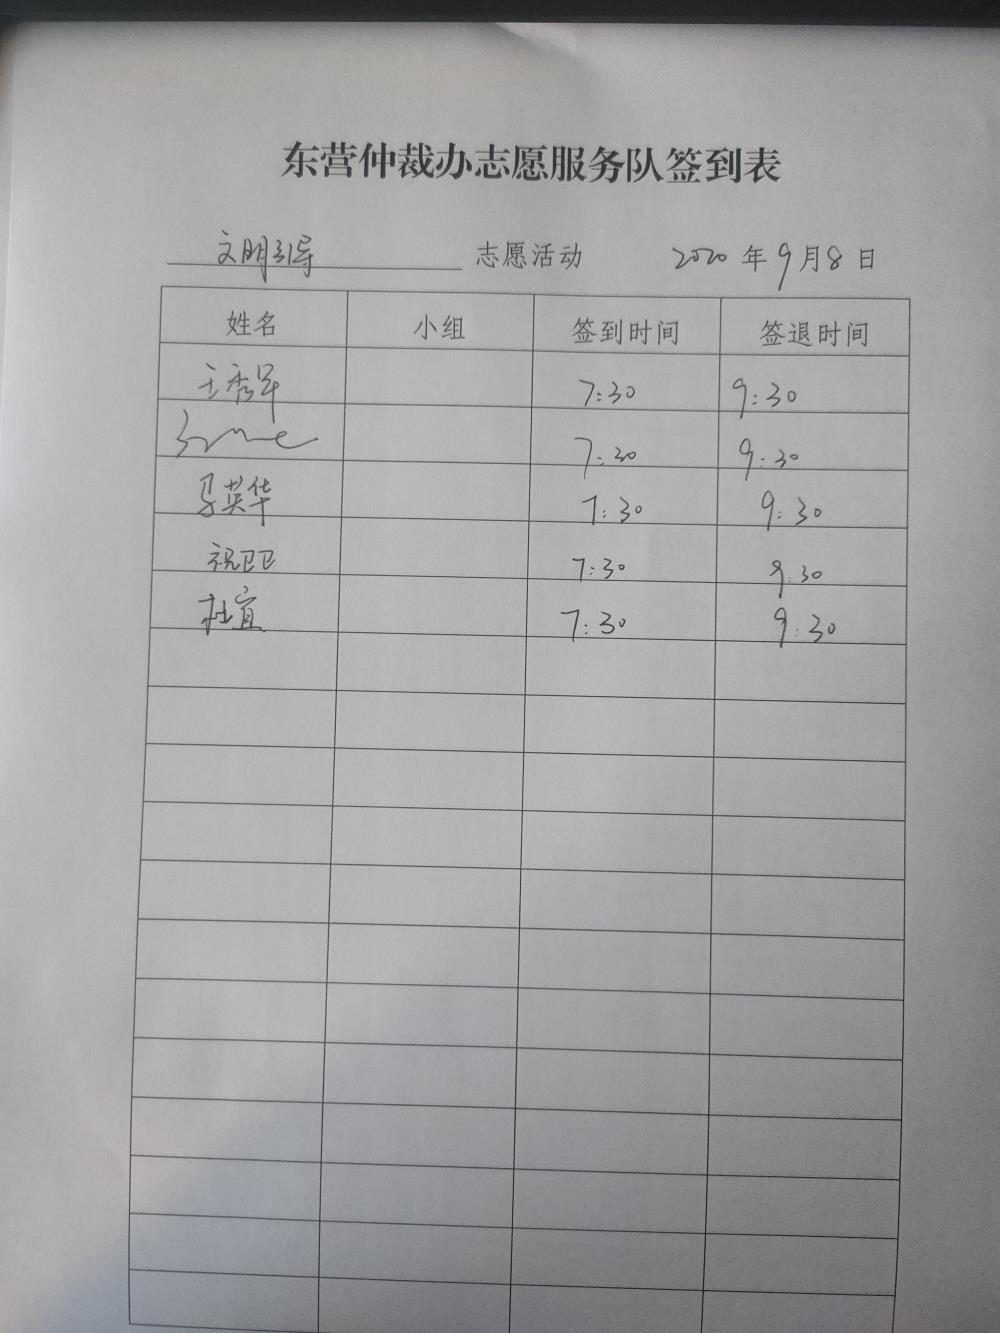 东营仲裁办志愿服务队签到表
文明引导 志愿活动 2020年9月8日
姓名 小组 签到时间 签退时间
王秀军 7:30 9:30
7:30 9:30
马英华 7:30 9:30
祝卫卫 7:30 9:30
杜宜 7:30 9:30